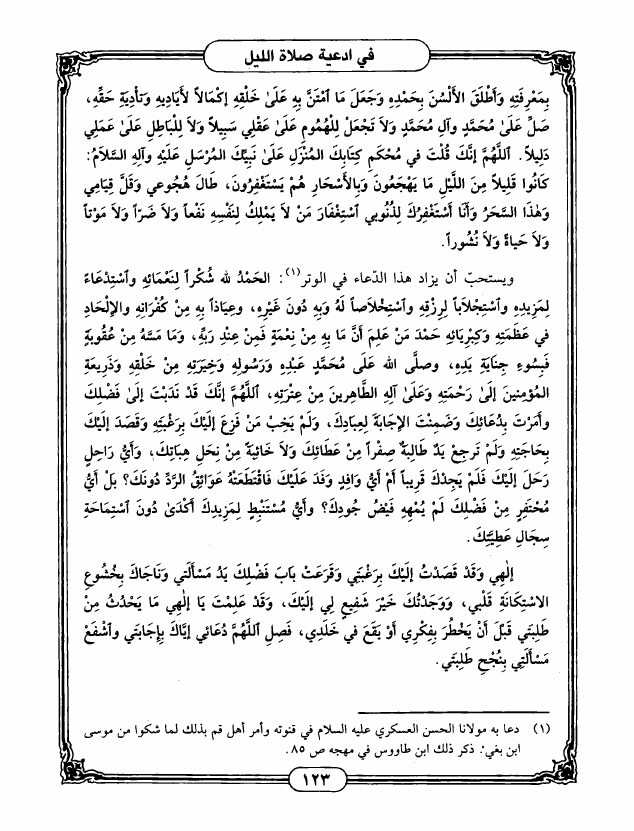 في ادعية صلاة الليل
بِمَعْرِفَتِهِ وَأَطْلَقَ الأَلْسُنَ بِحَمْدِهِ وَجَعَلَ مَا ٱمْتَنَّ بِهِ عَلَىٰ خَلْقِهِ إِكْمَالاً لأَيَادِيهِ وَتَأْدِيَةِ حَقِّهِ،
صَلِّ عَلىٰ مُحَمَّدٍ وَآلِ مُحَمَّدٍ وَلَا تَجْعَلْ لِلْهُمُومِ عَلىٰ عَقْلِي سَبِيلاً وَلَا لِلْبَاطِلِ عَلىٰ عَمَلِي
دَلِيلاً. اَللَّهُمَّ إِنَّكَ قُلْتَ في مُحْكَمِ كِتَابِكَ المُنْزَلِ عَلىٰ نَبِيِّكَ المُرْسَلِ عَلَيْهِ وَآلِهِ السَّلَامُ:
كَانُوا قَلِيلاً مِنَ اللَّيْلِ مَا يَهْجَعُونَ وَبِالأَسْحَارِ هُمْ يَسْتَغْفِرُونَ، طَالَ هُجُوعي وَقَلَّ قِيَامِي
وَهٰذَا السَّحَرُ وَأَنَا أَسْتَغْفِرُكَ لِذُنُوبي ٱسْتِغْفَارَ مَنْ لَا يَمْلِكُ لِنَفْسِهِ نَفْعاً وَلَا ضَرّاً وَلَا مَوْتاً
وَلَا حَيَاةً وَلَا نُشُوراً.
ويستحبّ أن يزاد هذا الدّعاء في الوتر(١): الحَمْدُ لله شُكْراً لِنَعْمَائِهِ وَٱسْتِدْعَاءً
لِمَزِيدِهِ وَٱسْتِجْلَاباً لِرِزْقِهِ وَٱسْتِخْلَاصاً لَهُ وَبِهِ دُونَ غَيْرِهِ، وَعِيَاذاً بِهِ مِنْ كُفْرَانِهِ وَالإِلْحَادِ
في عَظَمَتِهِ وَكِبْرِيَائِهِ حَمْدَ مَنْ عَلِمَ أَنَّ مَا بِهِ مِنْ نِعْمَةٍ فَمِنْ عِنْدِ رَبِّهِ، وَمَا مَسَّهُ مِنْ عُقُوبَةٍ
فَبِسُوءِ جِنَايَةِ يَدِهِ، وصلَّى الله عَلَى مُحَمَّدٍ عَبْدِهِ وَرَسُولِهِ وَخِيَرَتِهِ مِنْ خَلْقِهِ وَذَرِيعَةِ
المُؤْمِنينَ إِلىٰ رَحْمَتِهِ وَعَلىٰ آلِهِ الطَّاهِرينَ مِنْ عِتْرَتِهِ، اَللَّهُمَّ إِنَّكَ قَدْ نَدَبْتَ إِلىٰ فَضْلِكَ
وأَمَرْتَ بِدُعَائِكَ وَضَمِنْتَ الإِجَابَةَ لِعِبَادِكَ، وَلَمْ يَخِبْ مَنْ فَزِعَ إِلَيْكَ بِرَغْبَتِهِ وَقَصَدَ إِلَيْكَ
بِحَاجَتِهِ وَلَمْ تَرجِعْ يَدٌ طَالِبَةٌ صِفْراً مِنْ عَطَائِكَ وَلَا خَائِبَةً مِنْ نِحَلِ هِبَاتِكَ، وَأَيُّ رَاحِلٍ
رَحَلَ إِلَيْكَ فَلَمْ يَجِدْكَ قَرِيباً أَمْ أَيُّ وَافِدٍ وَفَدَ عَلَيْكَ فَاقْتَطَعَتْهُ عَوَائِقُ الرَّدِّ دُونَكَ؟ بَلْ أَيُّ
مُحْتَفِرٍ مِنْ فَضْلِكَ لَمْ يُمْهِهِ فَيْضُ جُودِكَ؟ وأَيُّ مُسْتَنْبِطٍ لِمَزِيدِكَ أَكْدَىٰ دُونَ ٱسْتِمَاحَةِ
سِجَالِ عَطِيَّتِكَ.
إِلٰهِي وَقَدْ قَصَدْتُ إِلَيْكَ بِرَغْبَتي وَقَرَعَتْ بَابَ فَضْلِكَ يَدُ مَسْأَلَتي وَنَاجَاكَ بِخُشُوعِ
الاسْتِكَانَةِ قَلْبي، وَوَجَدْتُكَ خَيْرَ شَفِيعٍ لِي إِلَيْكَ، وَقَدْ عَلِمْتَ يَا إِلٰهِي مَا يَحْدُثُ مِنْ
طَلِبَتي قَبْلَ أَنْ يَخْطُرَ بِفِكْرِي أَوْ يَقَعَ في خَلَدِي، فَصِلِ اَللَّهُمَّ دُعَائي إِيَّاكَ بِإِجَابَتي وٱشْفَعْ
مَسْأَلَتِي بِنُجْحِ طَلِبَتي.
(١) دعا به مولانا الحسن العسكري عليه السلام في قنوته وأمر أهل قم بذلك لما شكوا من موسى
ابن بغي: ذكر ذلك ابن طاووس في مهجه ص ٨٥.
١٢٣